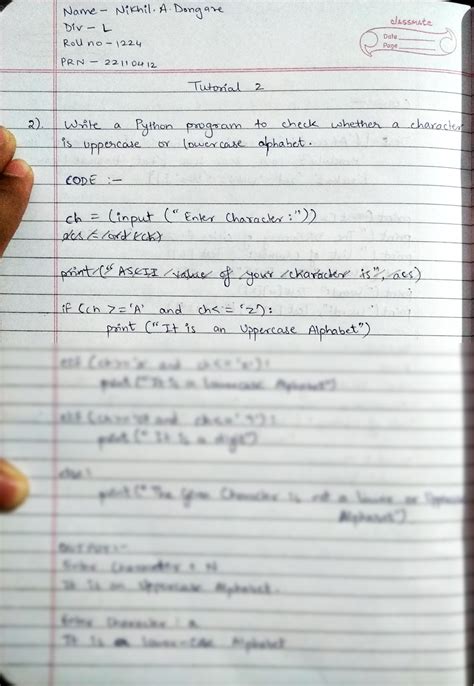 Name - Nikhil.A.Dongare
Div - L
Roll no - 1224
PRN - 22110412
classmate
Date
Page
Tutorial 2
2). Write a Python program to check whether a character
is uppercase or lowercase alphabet.
CODE :-
ch = (input ("Enter Character:"))
print ("ASCII value of your character is", acs)
if (ch >= 'A' and ch <= 'Z'):
print ("It is an Uppercase Alphabet")
print ("It is a Lowercase Alphabet")
print (" It is a digit")
else:
print (" The Given Character is not a Lower or Uppercase
Alphabet")
OUTPUT:-
Enter Character : N
It is an Uppercase Alphabet.
Enter Character : a
It is a lower-case Alphabet